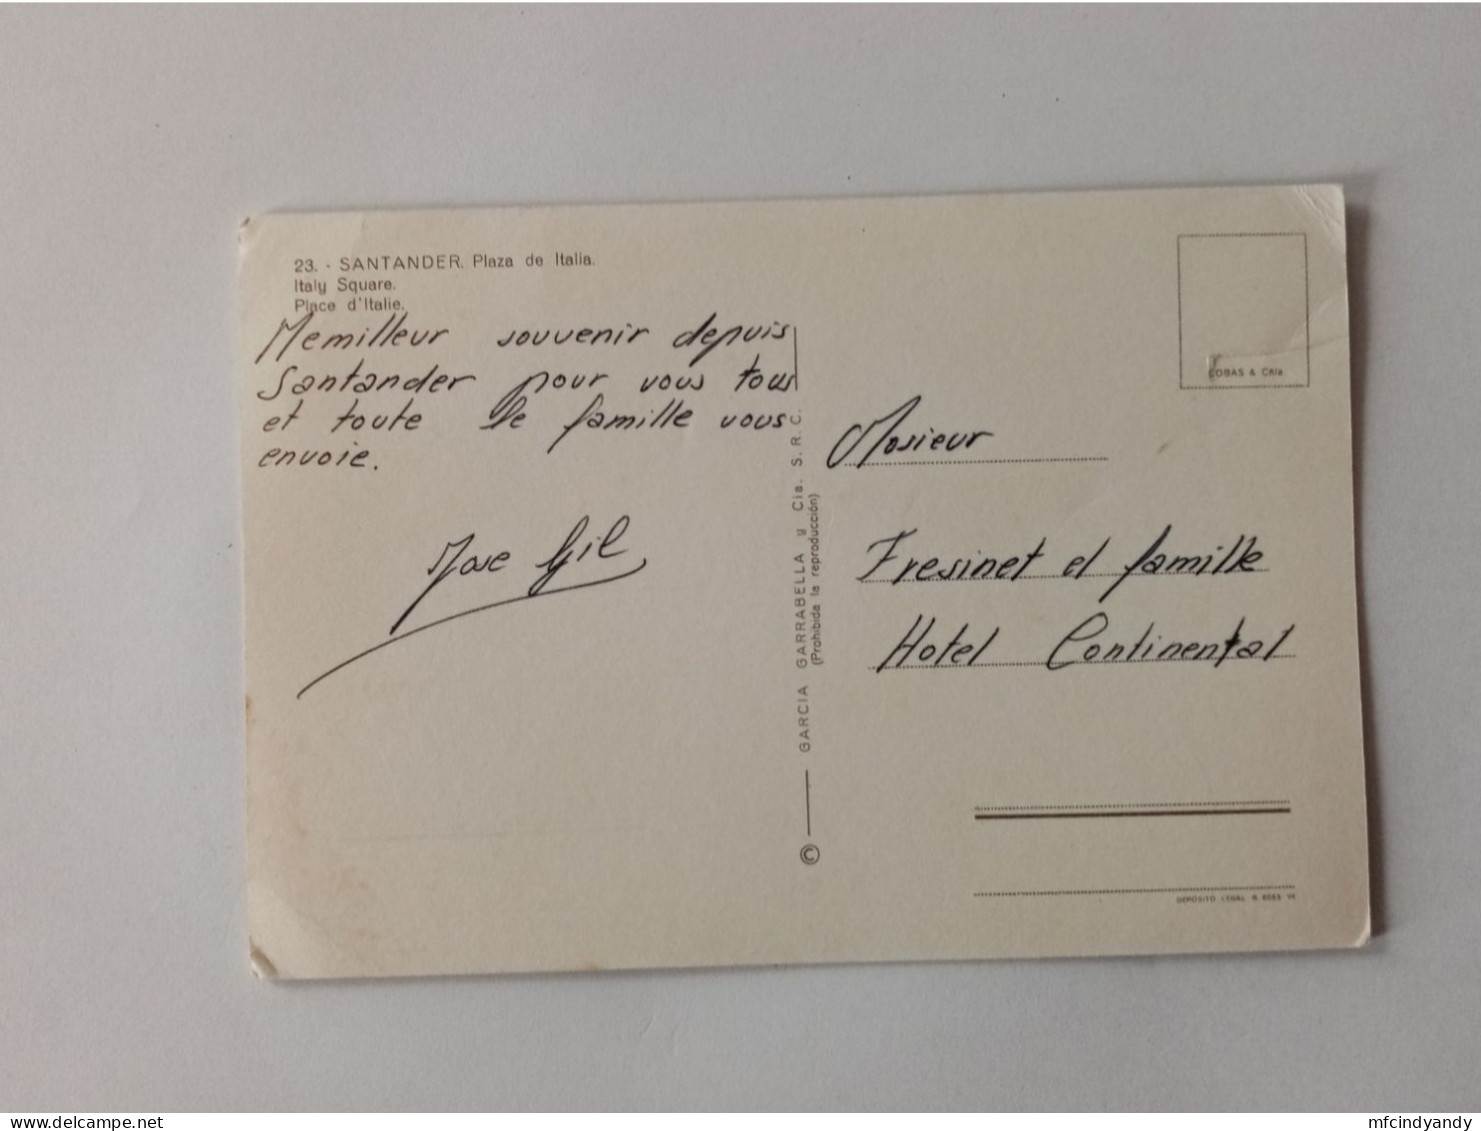 23. - SANTANDER. Plaza de Italia.
Italy Square.
Place d'Italie.
Memilleur souvenir depuis
Santander pour vous tous
et toute le famille vous
envoie.
Jose Gil
GARCIA GARRABELLA y Cía. S. R. C.
(Prohibida la reproducción)
©
COBAS & Cñia
Mosieur
Fresinet et famille
Hotel Continental
DEPOSITO LEGAL B.
mfcindyandy
delcampe.net